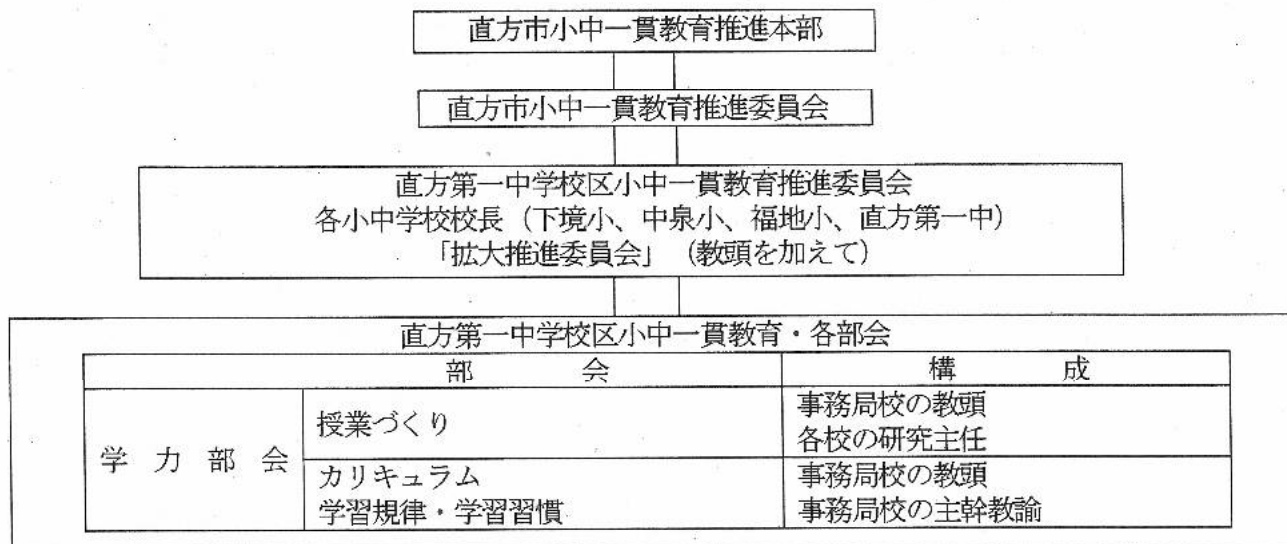 直方市小中一貫教育推進本部
直方市小中一貫教育推進委員会
直方第一中学校区小中一貫教育推進委員会
各小中学校校長（下境小、中泉小、福地小、直方第一中）
「拡大推進委員会」（教頭を加えて）
直方第一中学校区小中一貫教育・各部会
部　会　構　成
学力部会
授業づくり
事務局校の教頭
各校の研究主任
カリキュラム
学習規律・学習習慣
事務局校の教頭
事務局校の主幹教諭